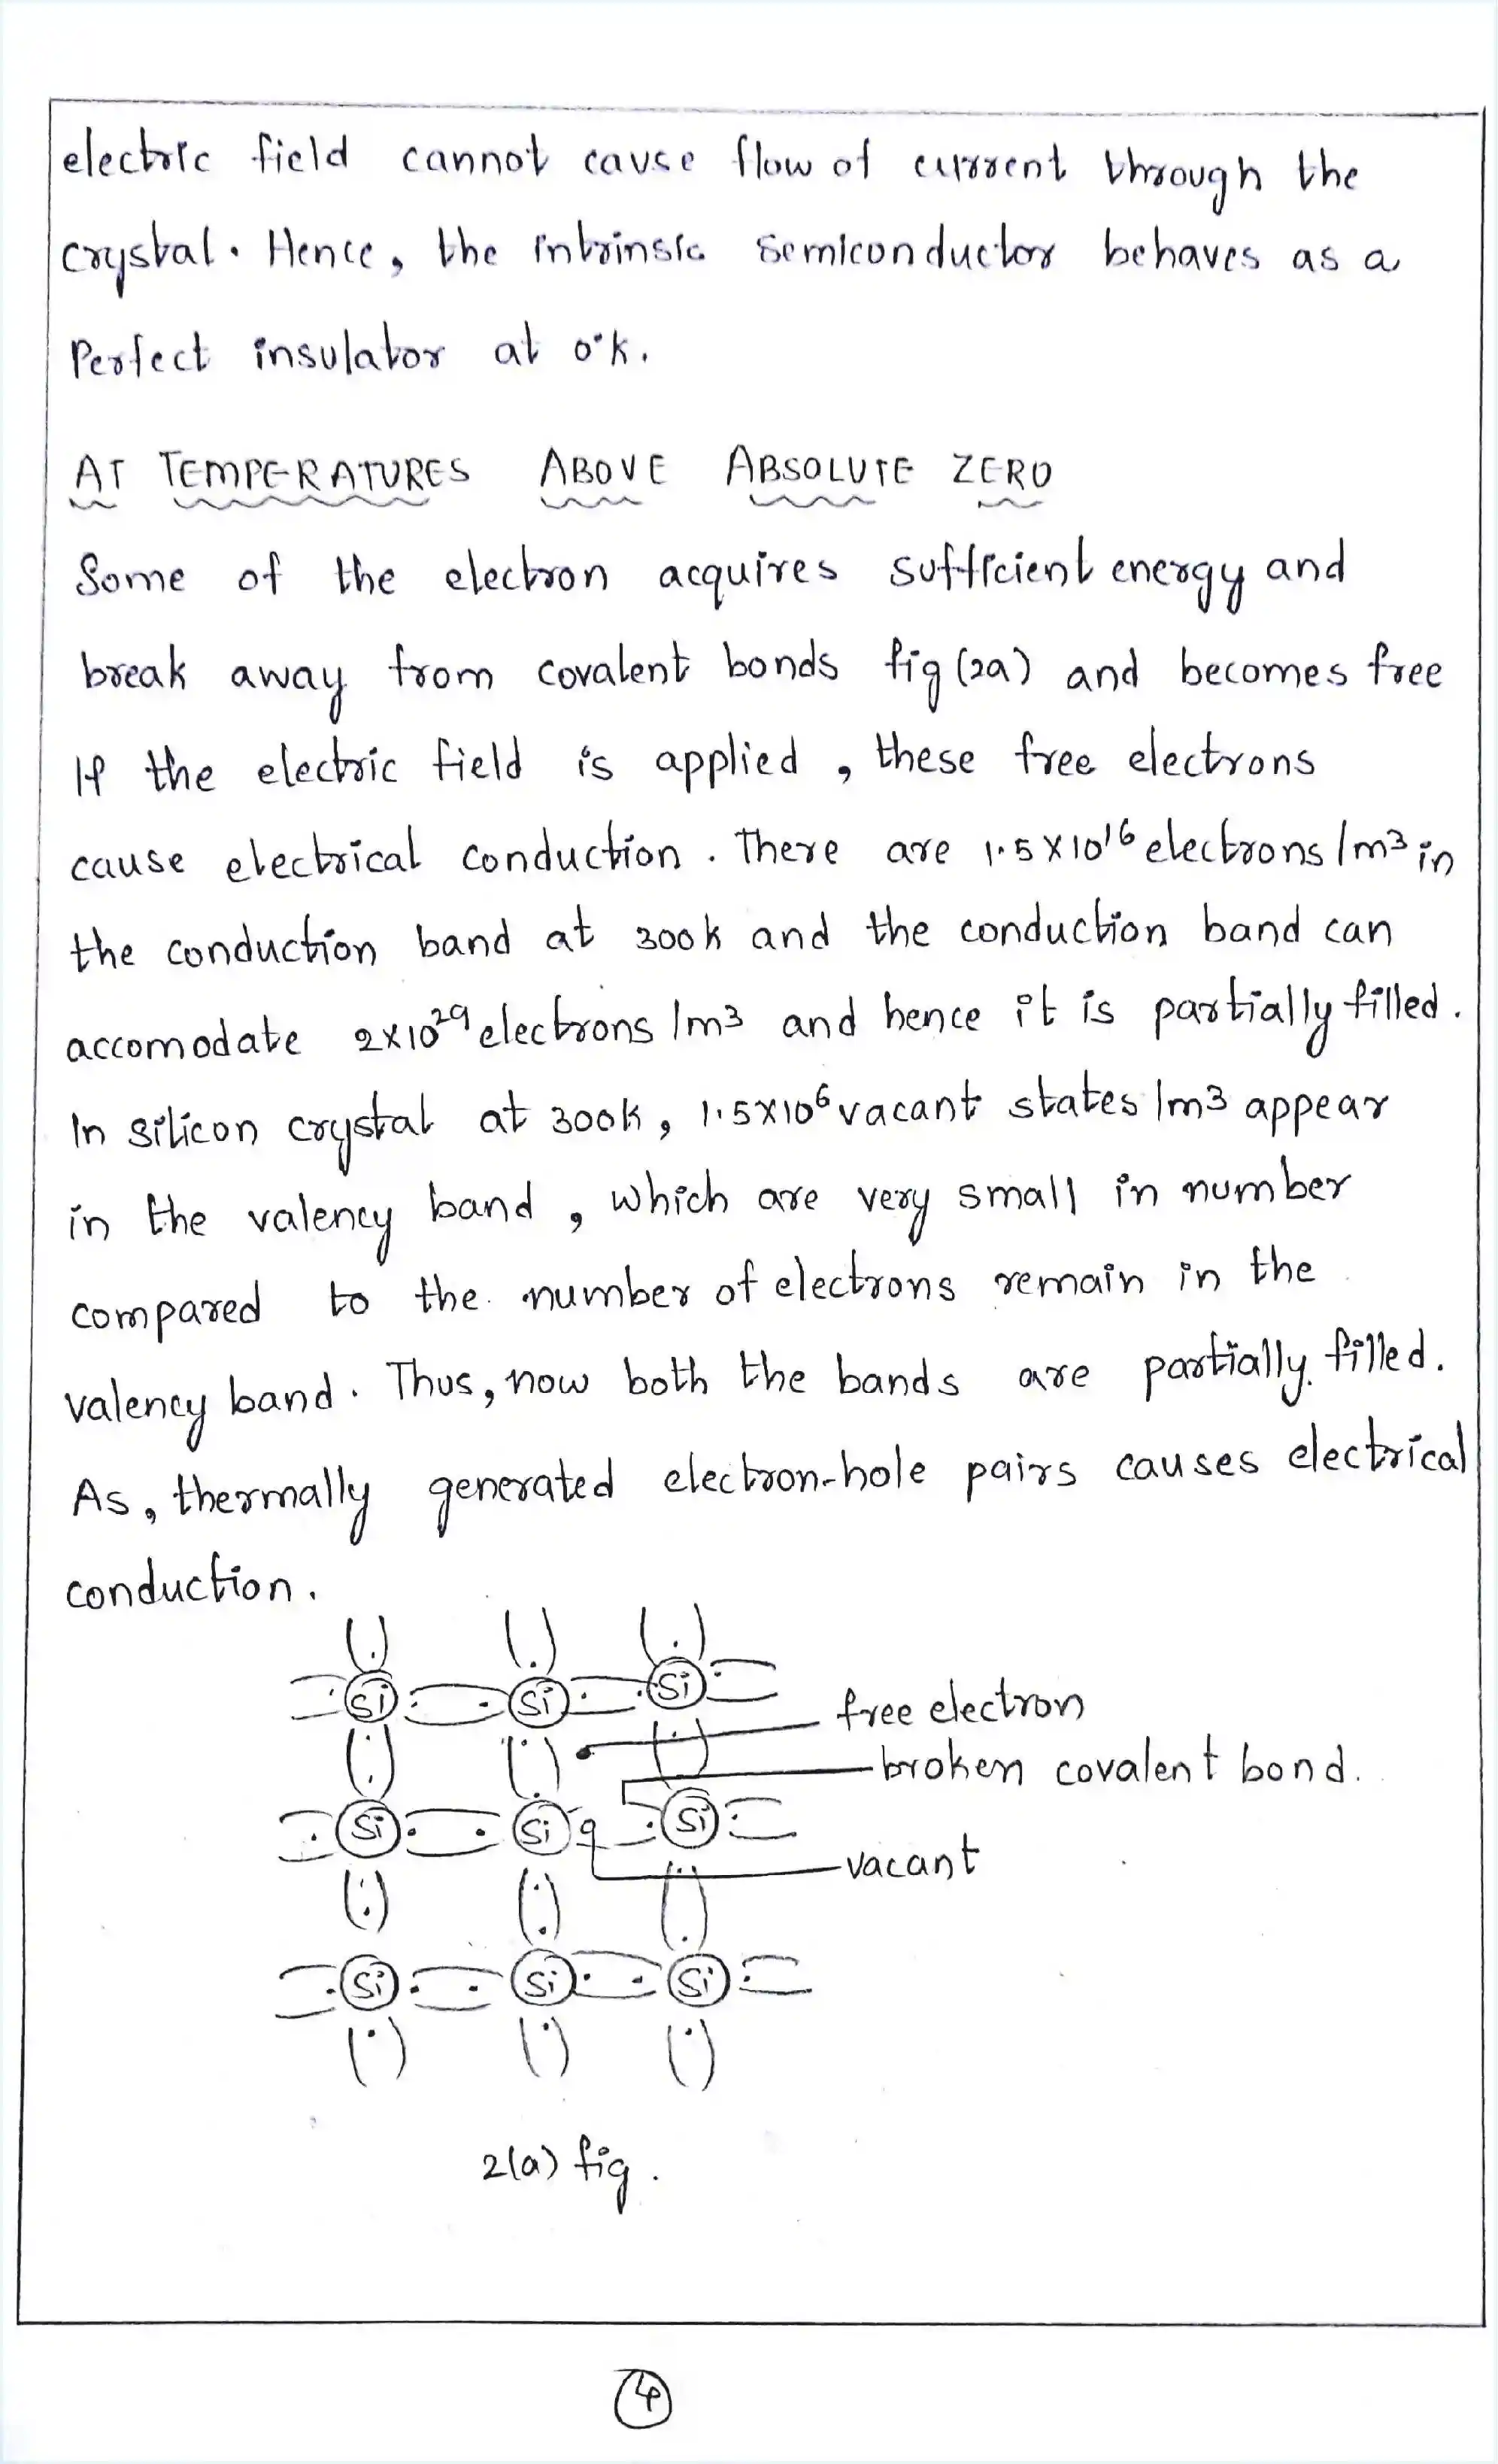 electric field cannot cause flow of current through the
crystal. Hence, the intrinsic semiconductor behaves as a
Perfect insulator at 0°K.
AT TEMPERATURES ABOVE ABSOLUTE ZERO
Some of the electron acquires sufficient energy and
break away from covalent bonds fig (2a) and becomes free
If the electric field is applied, these free electrons
cause electrical conduction. There are 1.5×10¹⁶ electrons/m3 in
the conduction band at 300k and the conduction band can
accomodate 2×10²⁹ electrons/m3 and hence it is partially filled.
In silicon crystal at 300k, 1.5×10⁶ vacant states/m3 appear
in the valency band, which are very small in number
compared to the number of electrons remain in the
valency band. Thus, now both the bands are partially filled.
As, thermally generated electron-hole pairs causes electrical
conduction.
Si Si Si
free electron
broken covalent bond.
Si Si Si
vacant
Si Si Si
2(a) fig.
4